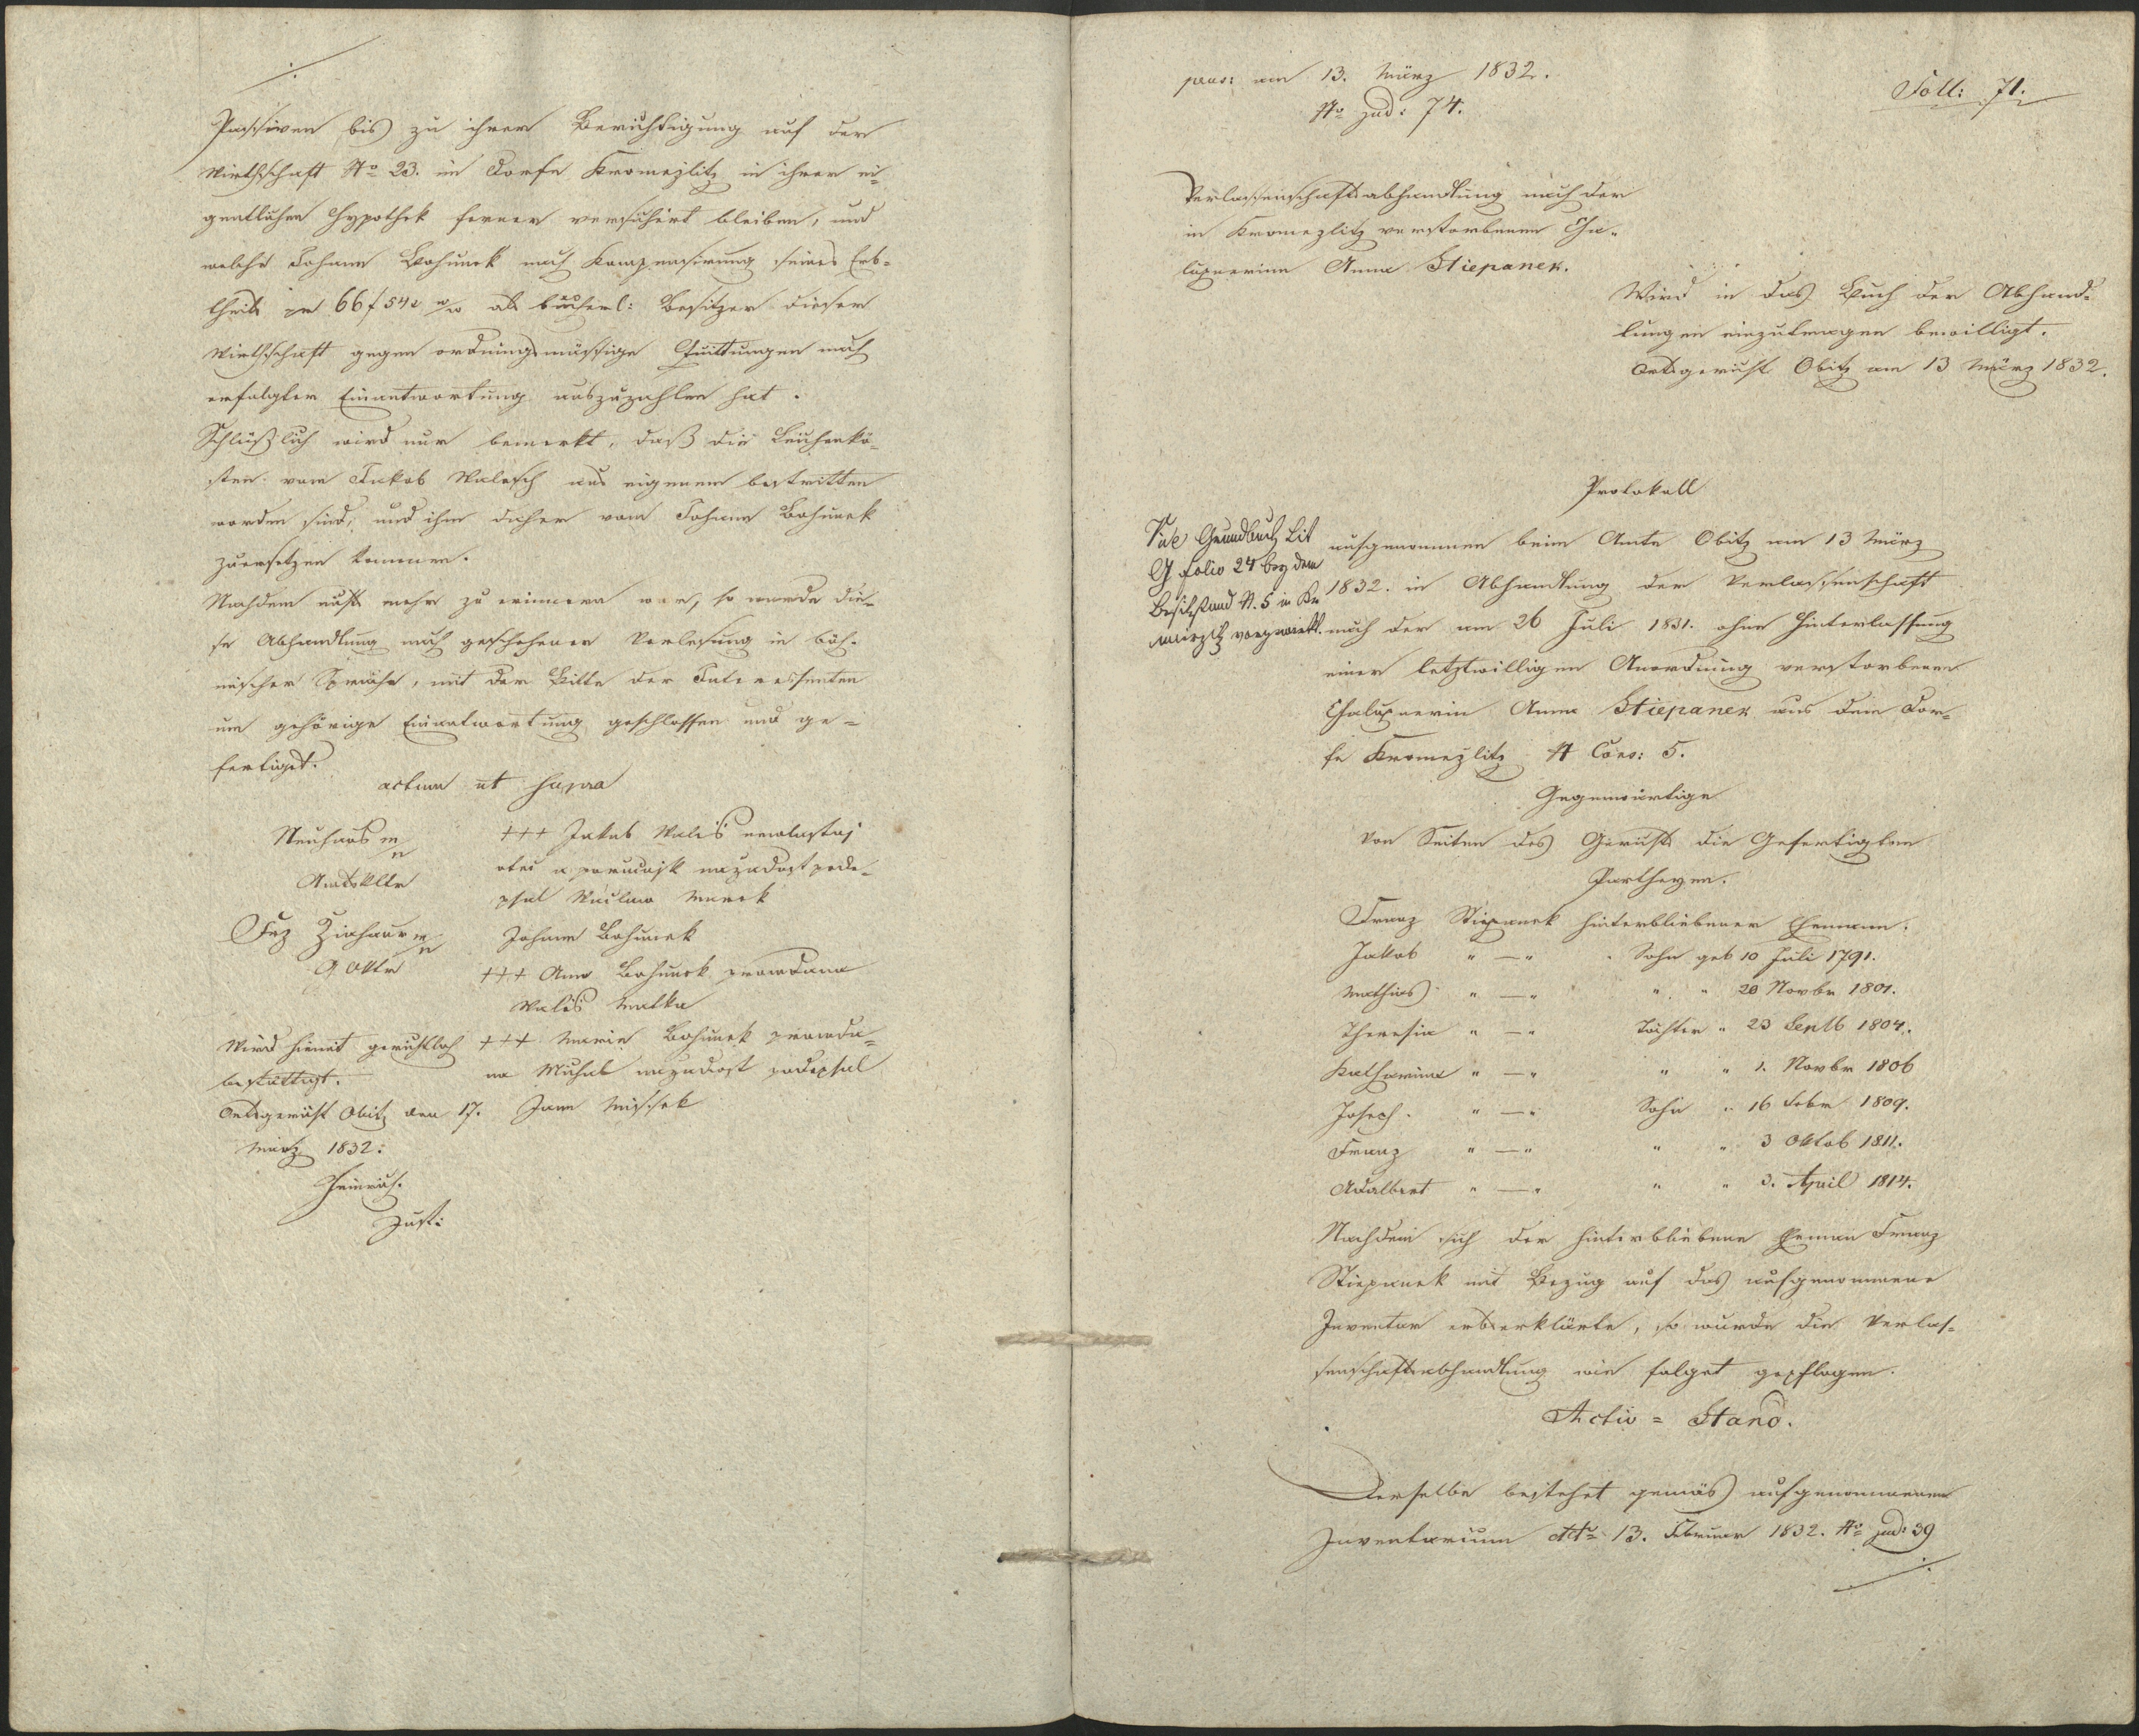 Passiven bis zu ihrer Berichtigung auf der
Wirthschaft No 23. im Dorfe Kromezlitz in ihrer ei-
gentlichen Hypothek ferner versichert bleiben, und
welche Johann Bohunek nach Kompensirung seines Erb-
theils pr 66 f 54 x als bücherl: Besitzer dieser
Wirthschaft gegen ordnungsmässige Quittungen nach
erfolgter Einantwortung auszuzahlen hat.
Schlüßlich wird nur bemerkt, daß die Leichenkö-
sten vom Jakob Walesch aus eigenem bestritten
worden sind, und ihm daher vom Johann Bohunek
zuersetzen kommen.
Nachdem nichts mehr zu erinnern war, so wurde die-
se Abhandlung nach geschehener Verlesung in böh-
mischer Sprache, mit der Bitte der Interessenten
um gehörige Einantwortung geschlossen und ge-
fertiget.
actum ut supra
Neuhaus
Amtsvltr
+++ Jakub Waleš
otec a porucnjk na zadost pode-
psal Marek
Johann Bohunek
+++ Ana Bohunek prowdana
Waleš Matka
+++ Marie Bohunek prowda-
na na zadost podepsal
Jann
Wird hiemit gerichtlich
bestättigt.
Ortsgericht Obitz den 17.
März 1832:
Heinrich
Just:
praes: am 13. März 1832.
No jud: 74.
Foll: 71.
Verlassenschaftsabhandlung nach der
in Kromezlitz verstorbenen Cha-
lupnerinn Anna Stiepanek.
Wird in das Buch der Abhand-
lungen einzutragen bewilligt.
Ortsgericht Obitz am 13 März 1832.
Protokoll
Vide Grundbuch Lit
G folio 24 bey dem
Besitzstand N. 5 in Kro
vorgemerkt.
aufgenommen beim Amte Obitz am 13 März
1832. in Abhandlung der Verlassenschaft
nach der am 26 Juli 1831. ohne Hinterlassung
einer letztwilligen Anordnung verstorbenen
Chalupnerin Anna Stiepanek aus dem Dor-
fe Kromezlitz N Cons: 5.
Gegenwärtige
Von Seiten des Gerichts die Gefertigten
Partheyen.
Franz Stiepanek hinterbliebener Ehemann.
Jakob " — " Sohn geb 10 Juli 1791.
Mathias " — " " " 28 Novbr 1801.
Theresia " — " Töchter " 23 Septb 1804.
Katharina " — " " " 1. Novbr 1806
Joseph. " — " Sohn " 16 Febr 1809.
Franz " — " " " 3 Oktob 1811.
Adalbert " — " " " 3. April 1814.
Nachdem sich der hinterbliebene Ehemann Franz
Stiepanek mit Bezug auf das aufgenommene
Inventar erbserklärte, so wurde die Verlas-
senschaftsabhandlung wie folget gepflogen.
Activ = Stand.
Derselbe bestehet gemäs aufgenommenen
Inventarium ddto 13. Februar 1832. No jud: 39